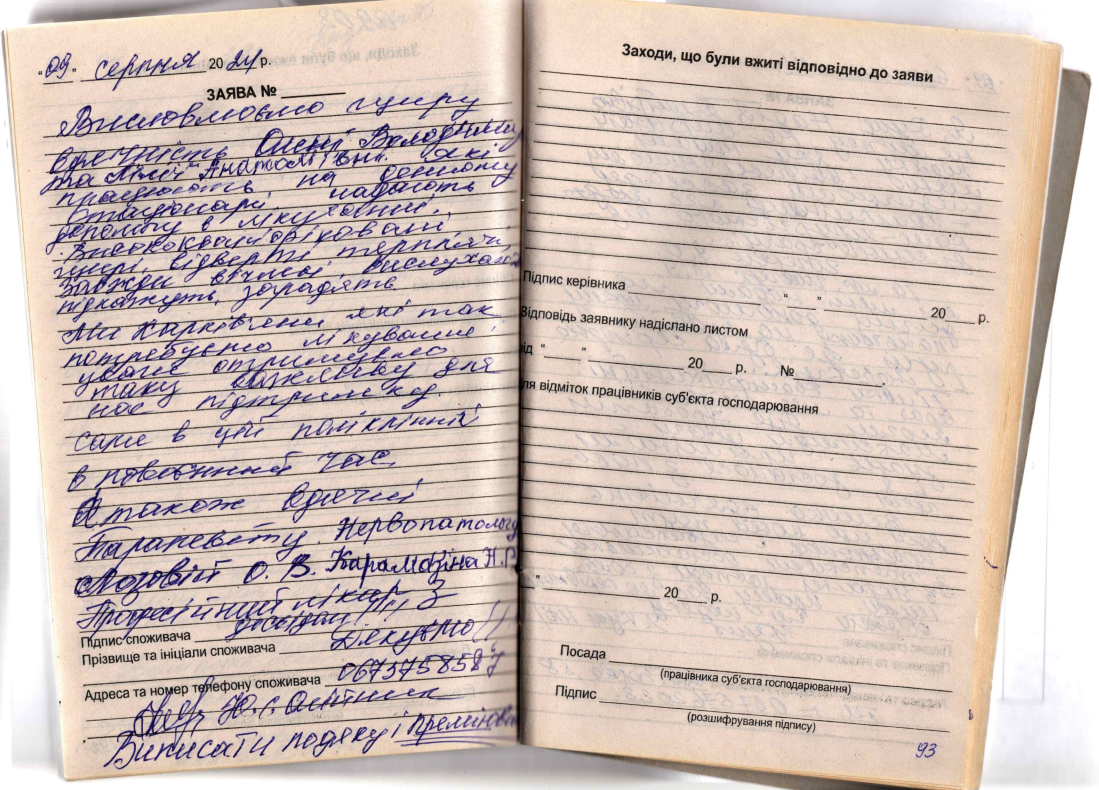 "09" серпня 2024 р.
ЗАЯВА №
Висловлюємо щиру
вдячність Олені Володимир
та Лілії Анатоліївні. які
працюють на денному
стаціонарі, надають
допомогу в лікуванні.
Висококваліфіковані,
щирі, відверті терплячі,
завжди ввічливі, вислухають
підкажуть, зарадять
Ми харківчани, які так
потребуємо лікування і
уваги отримуємо
таку важливу для
нас підтримку.
саме в цій поліклініці
в повоєнний час.
А також вдячні
Тарапевту. Нервопатологу
О. В. Карамзіна Н.
Професійний лікар, З
Підпис споживача досвідом !!!
Прізвище та ініціали споживача Дякуємо!!
Адреса та номер телефону споживача
Виписати подяку і преміюва
Заходи, що були вжиті відповідно до заяви
Підпис керівника " " 20 р.
Відповідь заявнику надіслано листом
ід " " 20 р. №
ля відміток працівників суб'єкта господарювання
" 20 р.
Посада
(працівника суб'єкта господарювання)
Підпис
(розшифрування підпису)
93